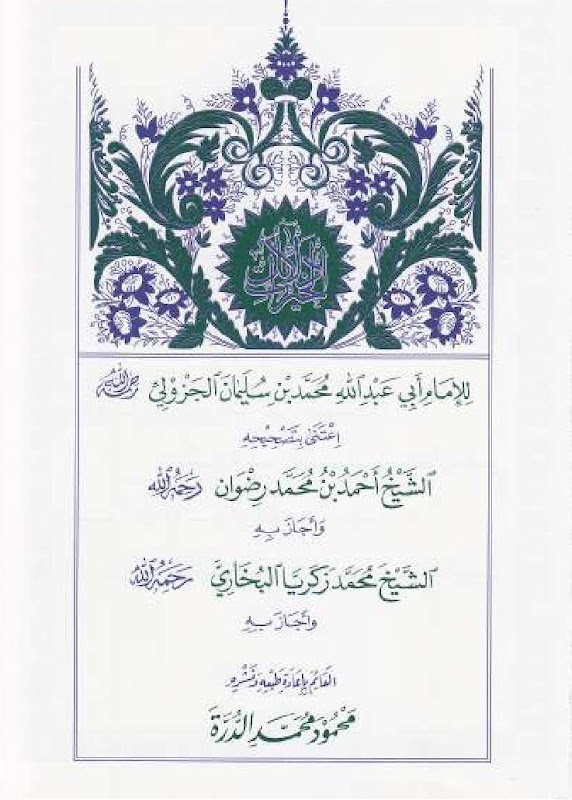 دلائل الخيرات
للإمام أبي عبد الله محمد بن سليمان الجزولي رحمه الله
اعتنى بتصحيحه
الشيخ أحمد بن محمد رضوان رحمه الله
وأجاز به
الشيخ محمد زكريا البخاري رحمه الله
وأجاز به
القائم بإعادة طبعه ونشره
محمود محمد الدرة